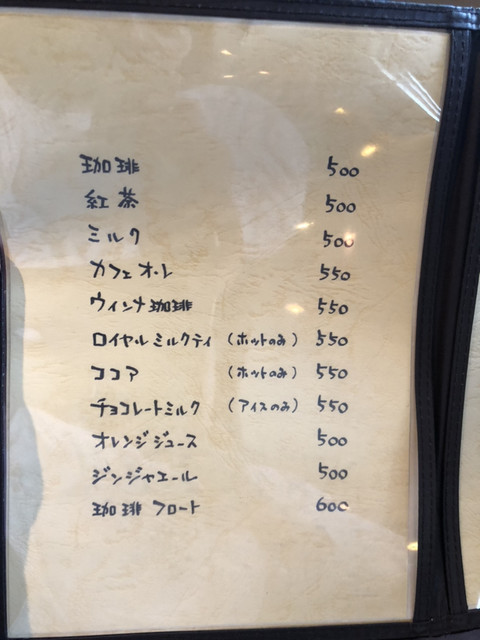 珈琲 500
紅茶 500
ミルク 500
カフェオ・レ 550
ウィンナ珈琲 550
ロイヤルミルクティ (ホットのみ) 550
ココア (ホットのみ) 550
チョコレートミルク (アイスのみ) 550
オレンジジュース 500
ジンジャエール 500
珈琲フロート 600